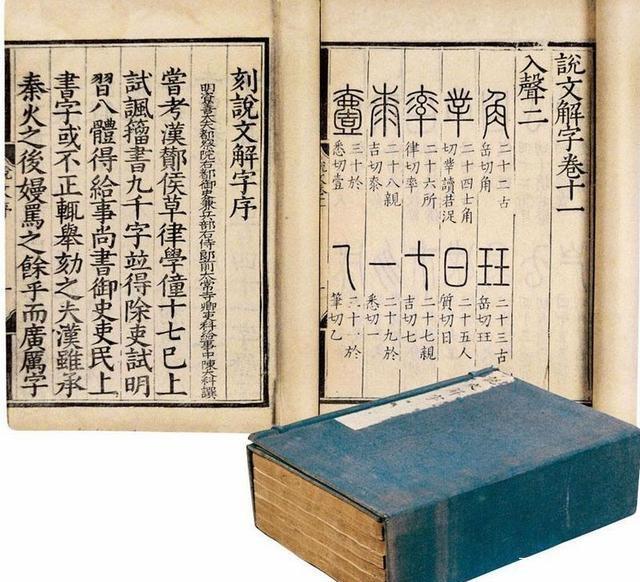 說文解字卷十一
入聲二
角 二十二古岳切角 玨 二十三古岳切玨
丵 二十四士角切丵讀若浞 日 二十五人質切日
率 二十六所律切率 七 二十七親吉切七
桼 二十八親吉切桼 一 二十九於悉切一
壹 三十於悉切壹 乙 三十一於筆切乙
刻說文解字序
明資善大夫都察院右都御史兼兵部右侍郎前太常寺卿吏科給事中陳大科撰
嘗考漢酇侯草律學僮十七已上
試諷籀書九千字竝得除吏試明
習八體得給事尚書御史史吏民上
書字或不正輒舉劾之夫漢雖承
秦火之後嫚罵之餘乎而廣厲字